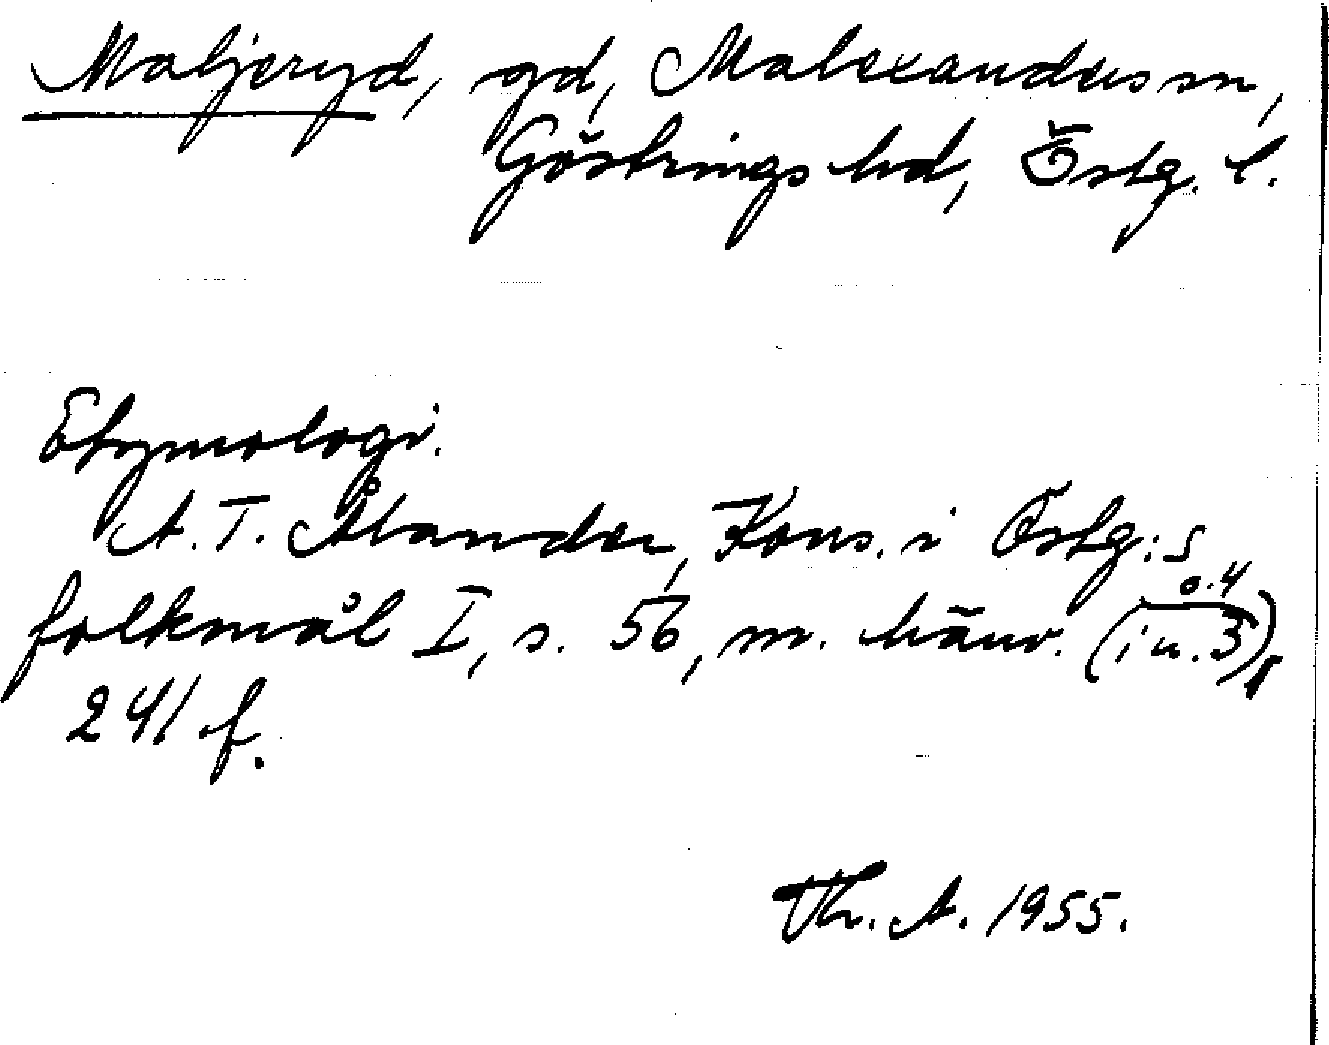 Maljeryd, gd, Malexanders sn,
Göstrings hd, Östg. l.
Etymologi.
A. T. Ålander, Kons. i Östg:s
folkmål I, s. 56, m. hänv. (i n. 3 o. 4),
241 f.
Th. A. 1955.